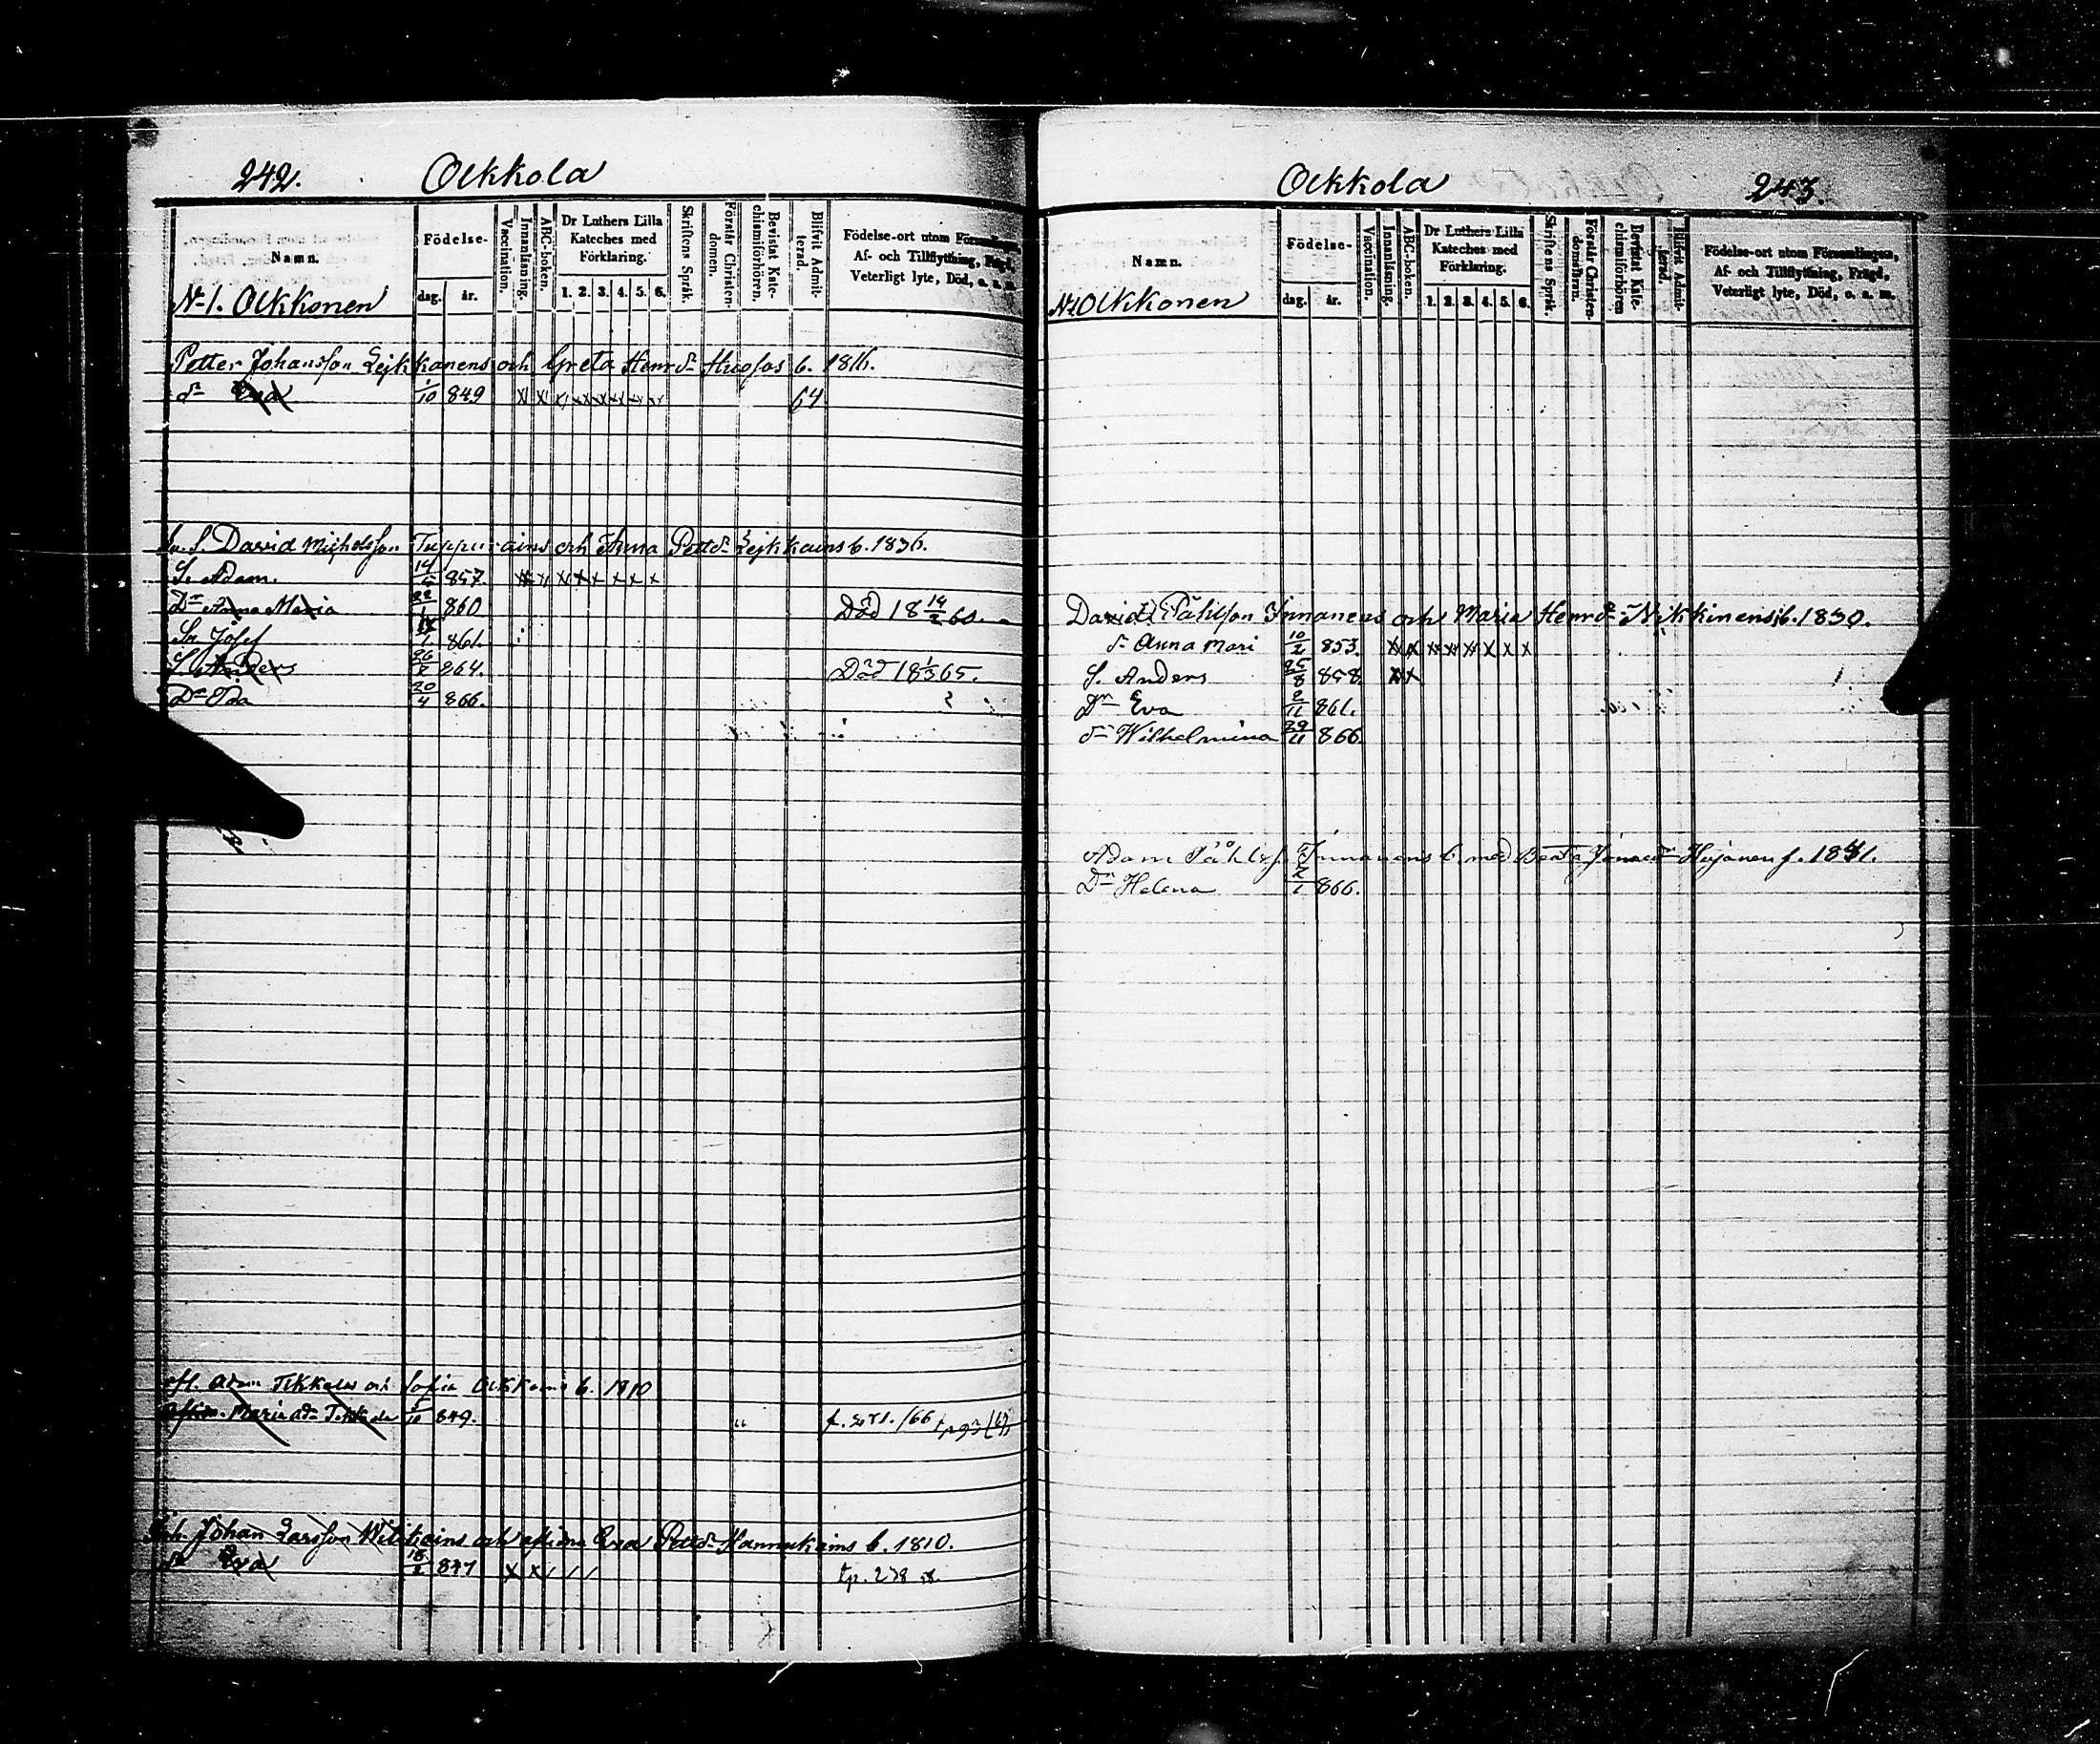 242. Olkkola
Namn.
Födelse-
dag. år.
Vaccination.
Innanläsning.
ABC-boken.
Dr Luthers Lilla Kateches med Förklaring.
1. 2. 3. 4. 5. 6.
Skriftens Språk.
Förstår Christendomen.
Bevistat Katechismiförhören.
Blifvit Admitterad.
Födelse-ort utom Församlingen,
Af- och Tillflyttning, Frägd,
Veterligt lyte, Död, o. a. m.
N-1. Olkkonen
Petter Johansson Lejkkanens och Greta Henrdr b. 1816.
dr Eva 1/10 849 x x x x x x x x 64
S. David Michelsson Tuppurains och Anna Pettdr Lejkkains b. 1836.
S. Adam. 857. x x x x x x x x
Dr Anna Maria 860 Död 18 14/2 60.
Sn Josef 861.
S. Anders 864. Död 18 1/3 65.
Dr Ida 20/4 866.
Adam Tikkales och Sofia Olkkains b. 1810
Maria 849. /66
Johan Larsson Witikains och Eva Pettdr Hannukains b. 1810.
dr Eva 18/2 847 x x / / / tp. 238
Olkkola 243.
Namn.
Födelse-
dag. år.
Vaccination.
Innanläsning.
ABC-boken.
Dr Luthers Lilla Kateches med Förklaring.
1. 2. 3. 4. 5. 6.
Skriftens Språk.
Förstår Christendomsläran.
Bevistat Katechismiförhören
Blifvit Admitterad.
Födelse-ort utom Församlingen,
Af- och Tillflyttning, Frägd,
Veterligt lyte, Död, o. a. m.
N1. Olkkonen
David Påhlsson Innanens och Maria Henrdr Nikkinens b. 1830.
dr Anna Mari 10/2 853. x x x x x x x x
S. Anders 25/8 858. x x
Dr Eva 2/11 861.
dr Wilhelmina 29/11 866.
Adam Påhlss. Innanens b. med Beata Hujanen f. 1841.
Dr Helena 866.